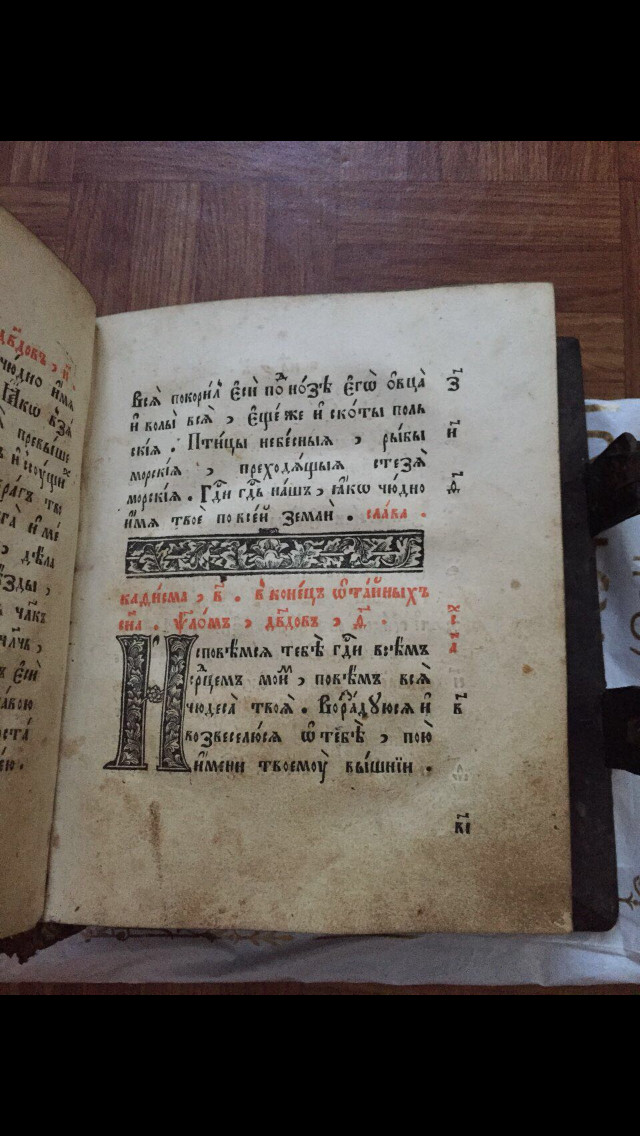 дв҃довъ, и҃
чюдно и҆́мѧ
ꙗ҆́кѡ взѧ
превыше
и҆ сѹ́щи
вра́гъ тво
и҆ мѣ
, дѣла
ѕды,
чл҃къ
є҆сѝ
вою
ста́
Всѧ̀ покори́лъ є҆сѝ по́дъ но́зѣ є҆гѡ̀ ѻ҆вца̀ з҃
и҆ волы̀ всѧ̀, є҆ще́ же и҆ ско́ты поль
скїѧ. Пти́цы небе́сныѧ, ры́бы и҃
морскїѧ, преходѧ́щыѧ стезѧ̀
морскїѧ. Гд҇и гд҇ь нашъ, ꙗ҆́кѡ чю́дно ѳ҃
и҆́мѧ твоѐ по все́й землѝ. сла́ва.
каѳи́сма, в҃. в коне́цъ ѿ та́йныхъ
сн҃а. ѱ҆ло́мъ, дв҃довъ, ѳ҃.
Исповѣ́мсѧ тебѣ̀ гд҇и всѣ́мъ
се́рдцемъ мои́мъ, повѣ́мъ всѧ̀
чюдеса̀ твоѧ̀. Возра́дуюсѧ и҆ в҃
возвеселю́сѧ ѡ҆ тебѣ̀, пою̀
и҆́мени твоемоу̀ вы́шнїи.
вı҃